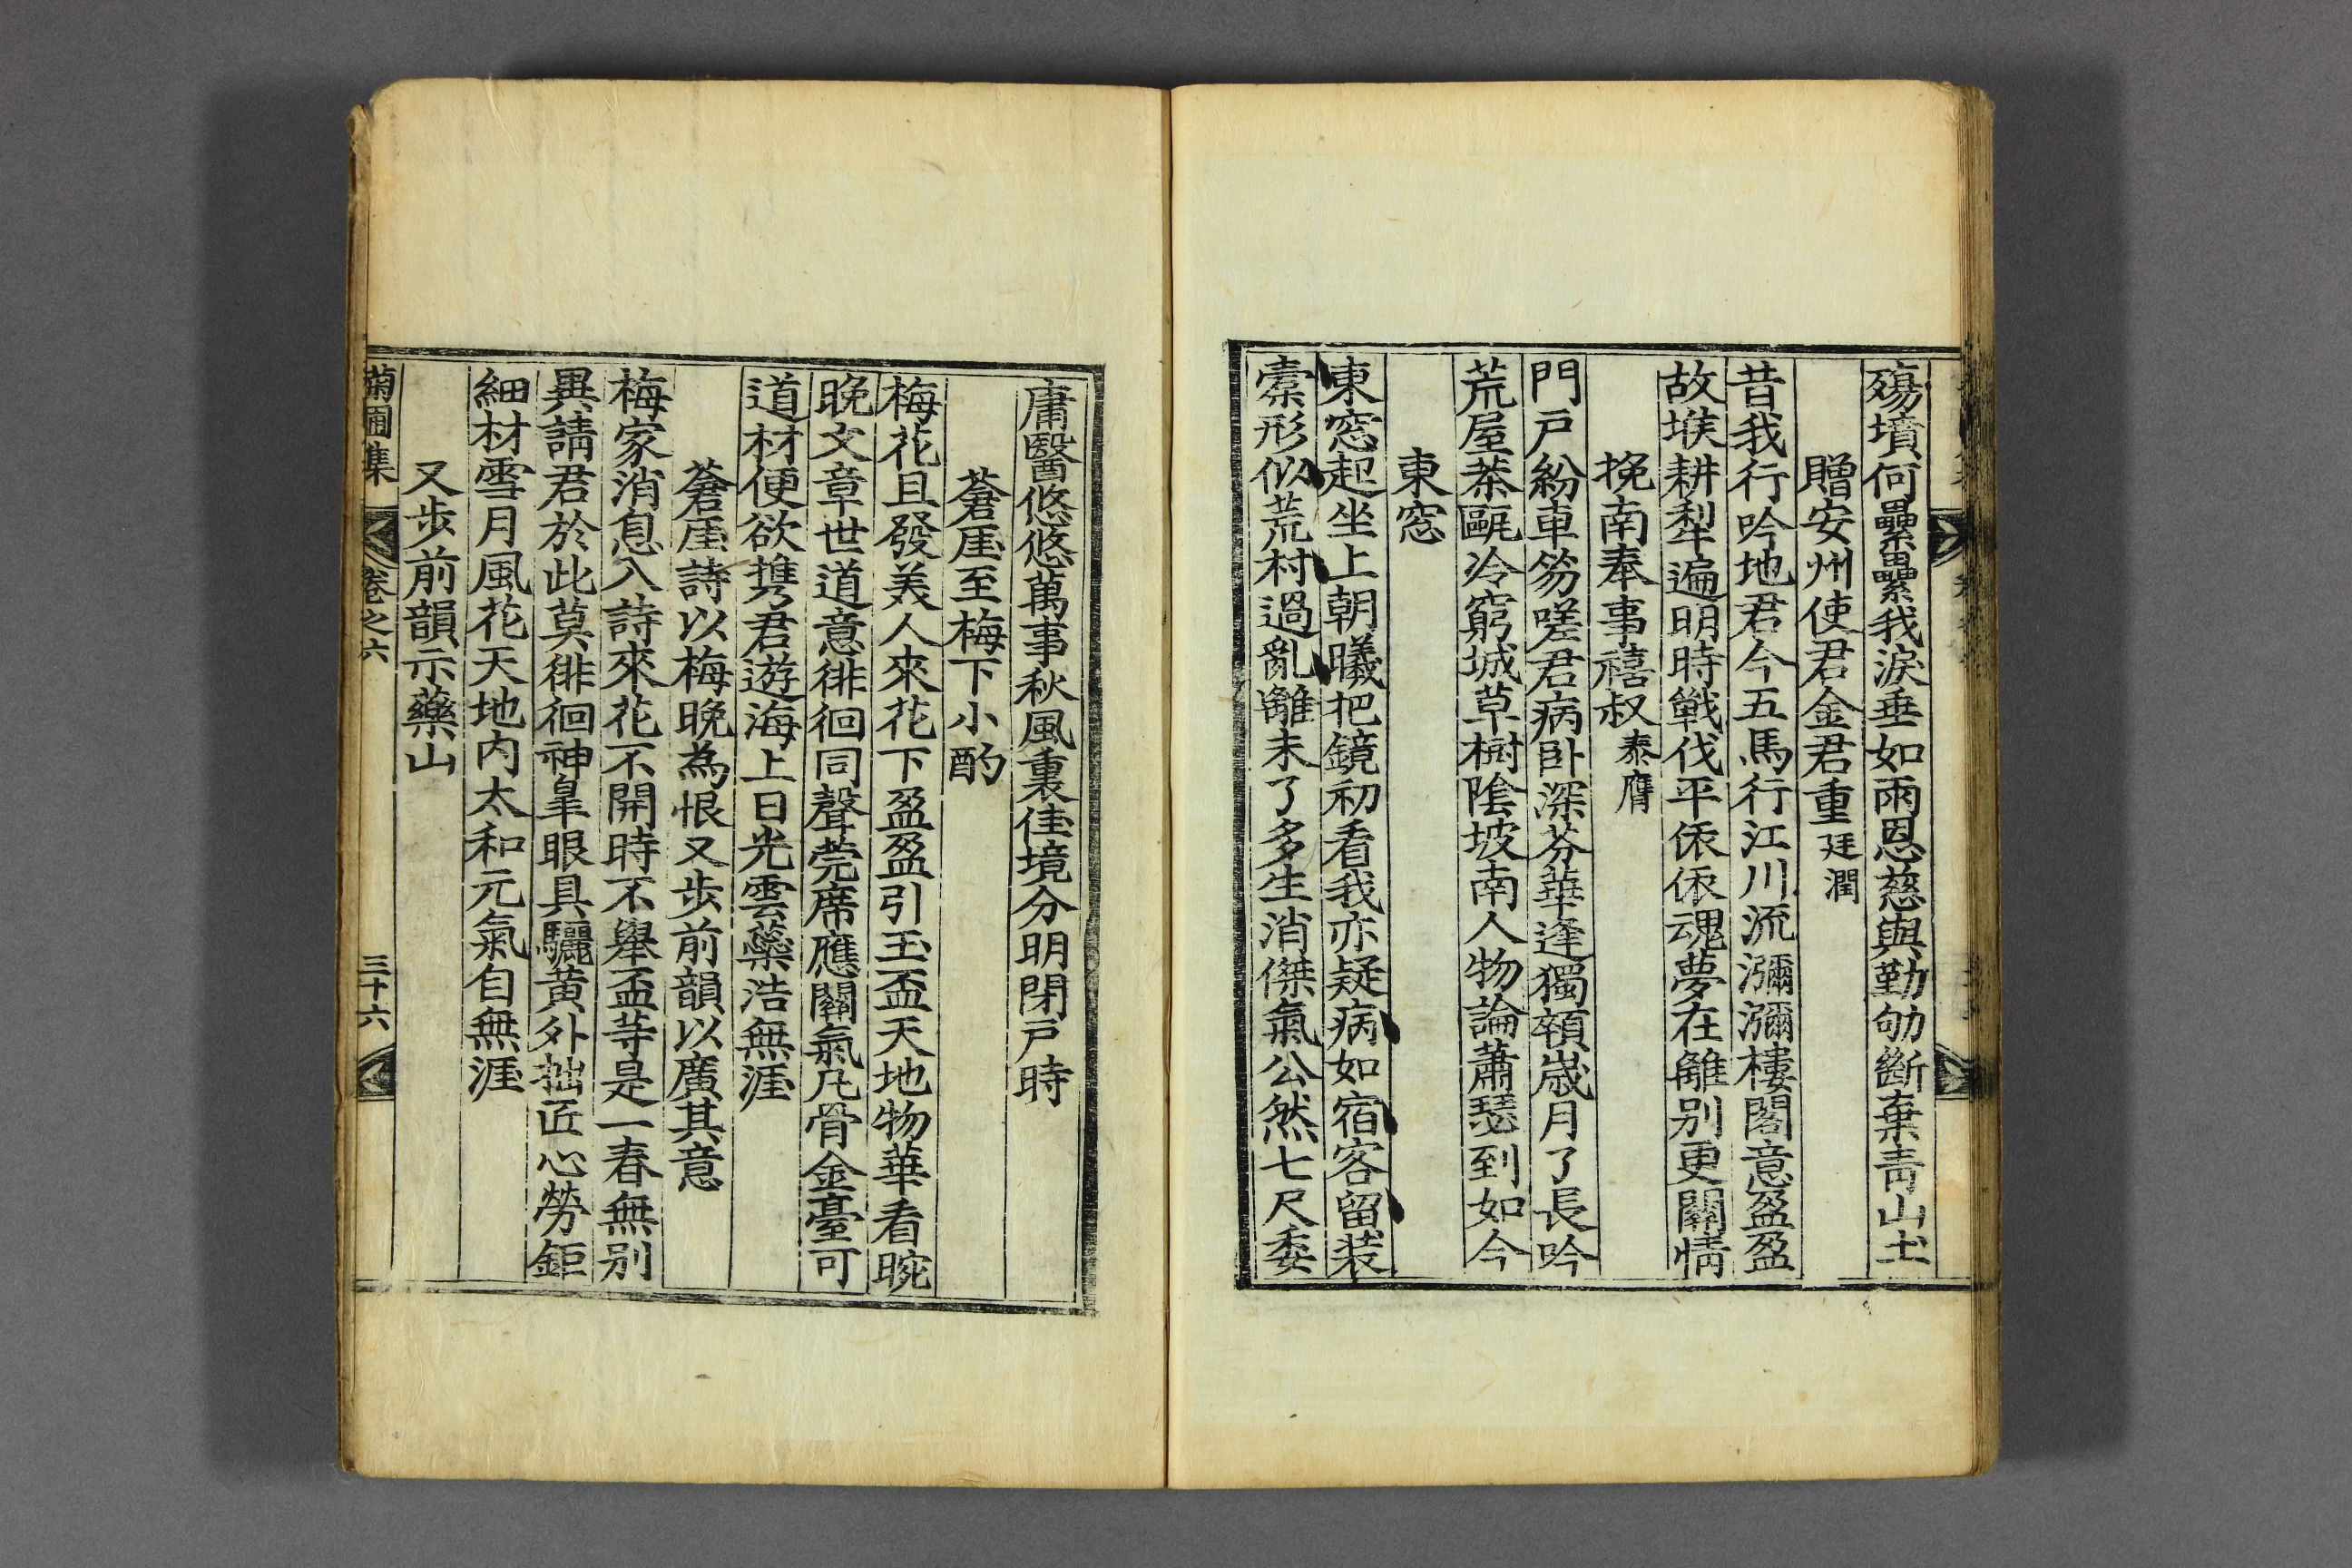 殤墳何纍纍我淚垂如雨恩慈與勤劬斷棄靑山土
贈安州使君金君重廷潤
昔我行吟地君今五馬行江川流瀰瀰樓閣意盈盈
故堠耕犁遍明時戰伐平依依魂夢在離别更關情
挽南奉事禧叔泰膺
門戶紛車笏嗟君病卧深芬華逢獨頷歲月了長吟
荒屋茶甌冷窮城草樹陰坡南人物論蕭瑟到如今
東窓
東窓起坐上朝曦把鏡初看我亦疑病如宿客留装
槖形似荒村過亂離未了多生消傑氣公然七尺委
庸醫悠悠萬事秋風裏佳境分明閉戶時
蒼厓至梅下小酌
梅花且發美人來花下盈盈引玉盃天地物華看晼
晚文章世道意徘徊同聲莞席應關氣凡骨金臺可
道材便欲携君遊海上日光雲藥浩無涯
蒼厓詩以梅晚為恨又步前韻以廣其意
梅家消息入詩來花不開時不擧盃等是一春無别
異請君於此莫徘徊神皐眼具驪黃外拙匠心勞鉅
細材雪月風花天地内太和元氣自無涯
又步前韻示藥山
菊圃集 卷之六 三十六